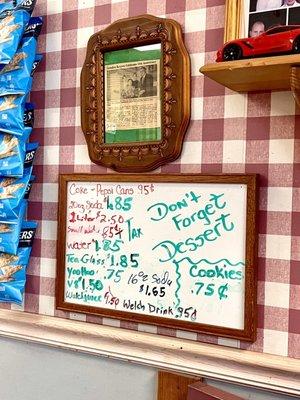 Coke - Pepsi Cans 95¢
20oz Soda $1.85
2 Liter $2.50
Small Wat. 85¢
TAX
Water $1.85
Tea Glass $1.85
Yoohoo .75
V8 $1.50
16oz Soda
$1.65
Welch Drink .95¢
Don't
Forget
Dessert
Cookies
.75¢